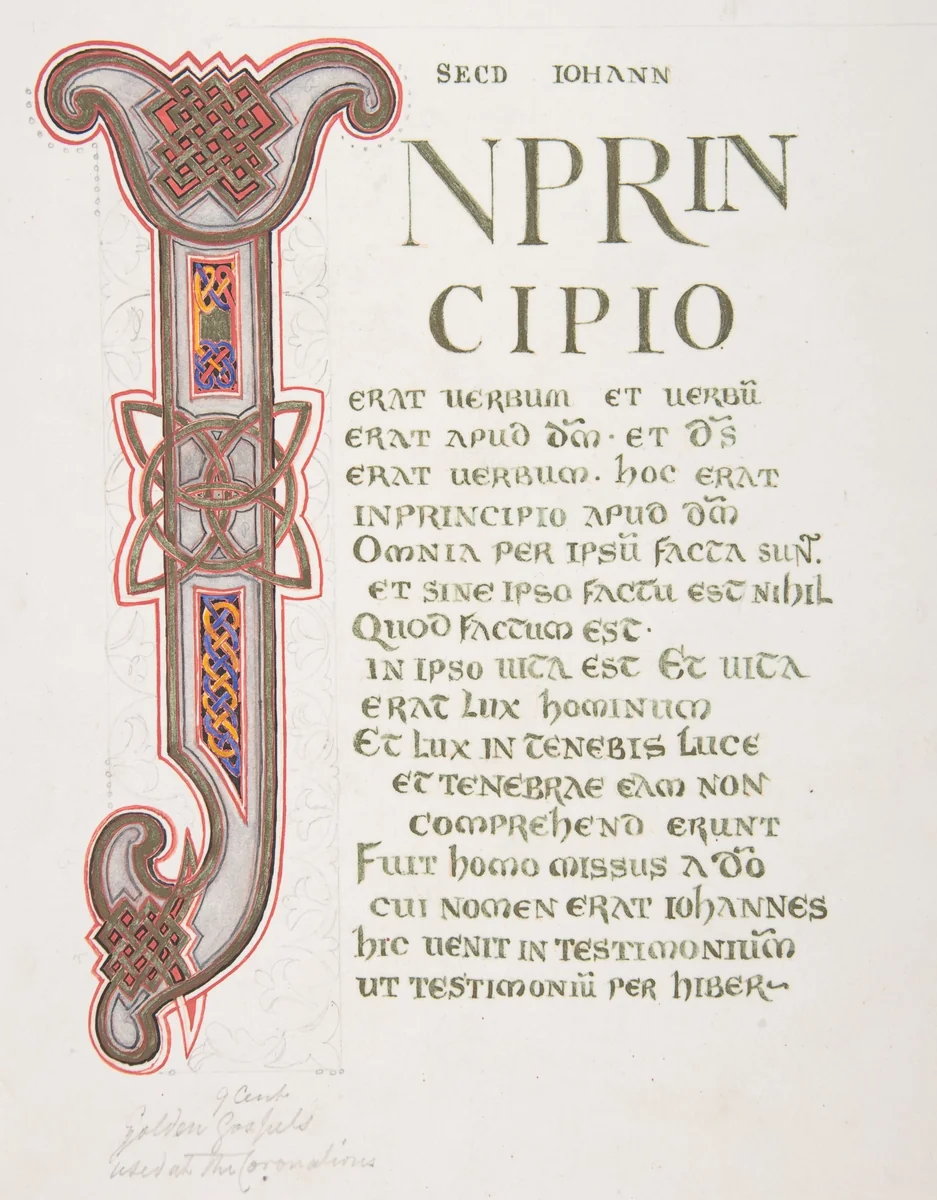 SECD IOHANN
INPRIN
CIPIO
ERAT UERBUM ET UERBŪ
ERAT APUD DM̄· ET DS̄
ERAT UERBUM. hOC ERAT
INPRINCIPIO APUD DM̄
OMNIA PER IPSŪ FACTA SUN̄T.
ET SINE IPSO FACTŪ EST NIhIL
QUOD FACTUM EST·
IN IPSO UITA EST ET UITA
ERAT LUX hOMINUM
ET LUX IN TENEBIS LUCE
ET TENEBRAE EAM NON
COMPREhEND ERUNT
FUIT hOMO MISSUS A DŌ
CUI NOMEN ERAT IOhANNES
hIC UENIT IN TESTIMONIUM̄
UT TESTIMONIŪ PER hIBER~
9 Cent
Golden Gospels
used at the Coronations